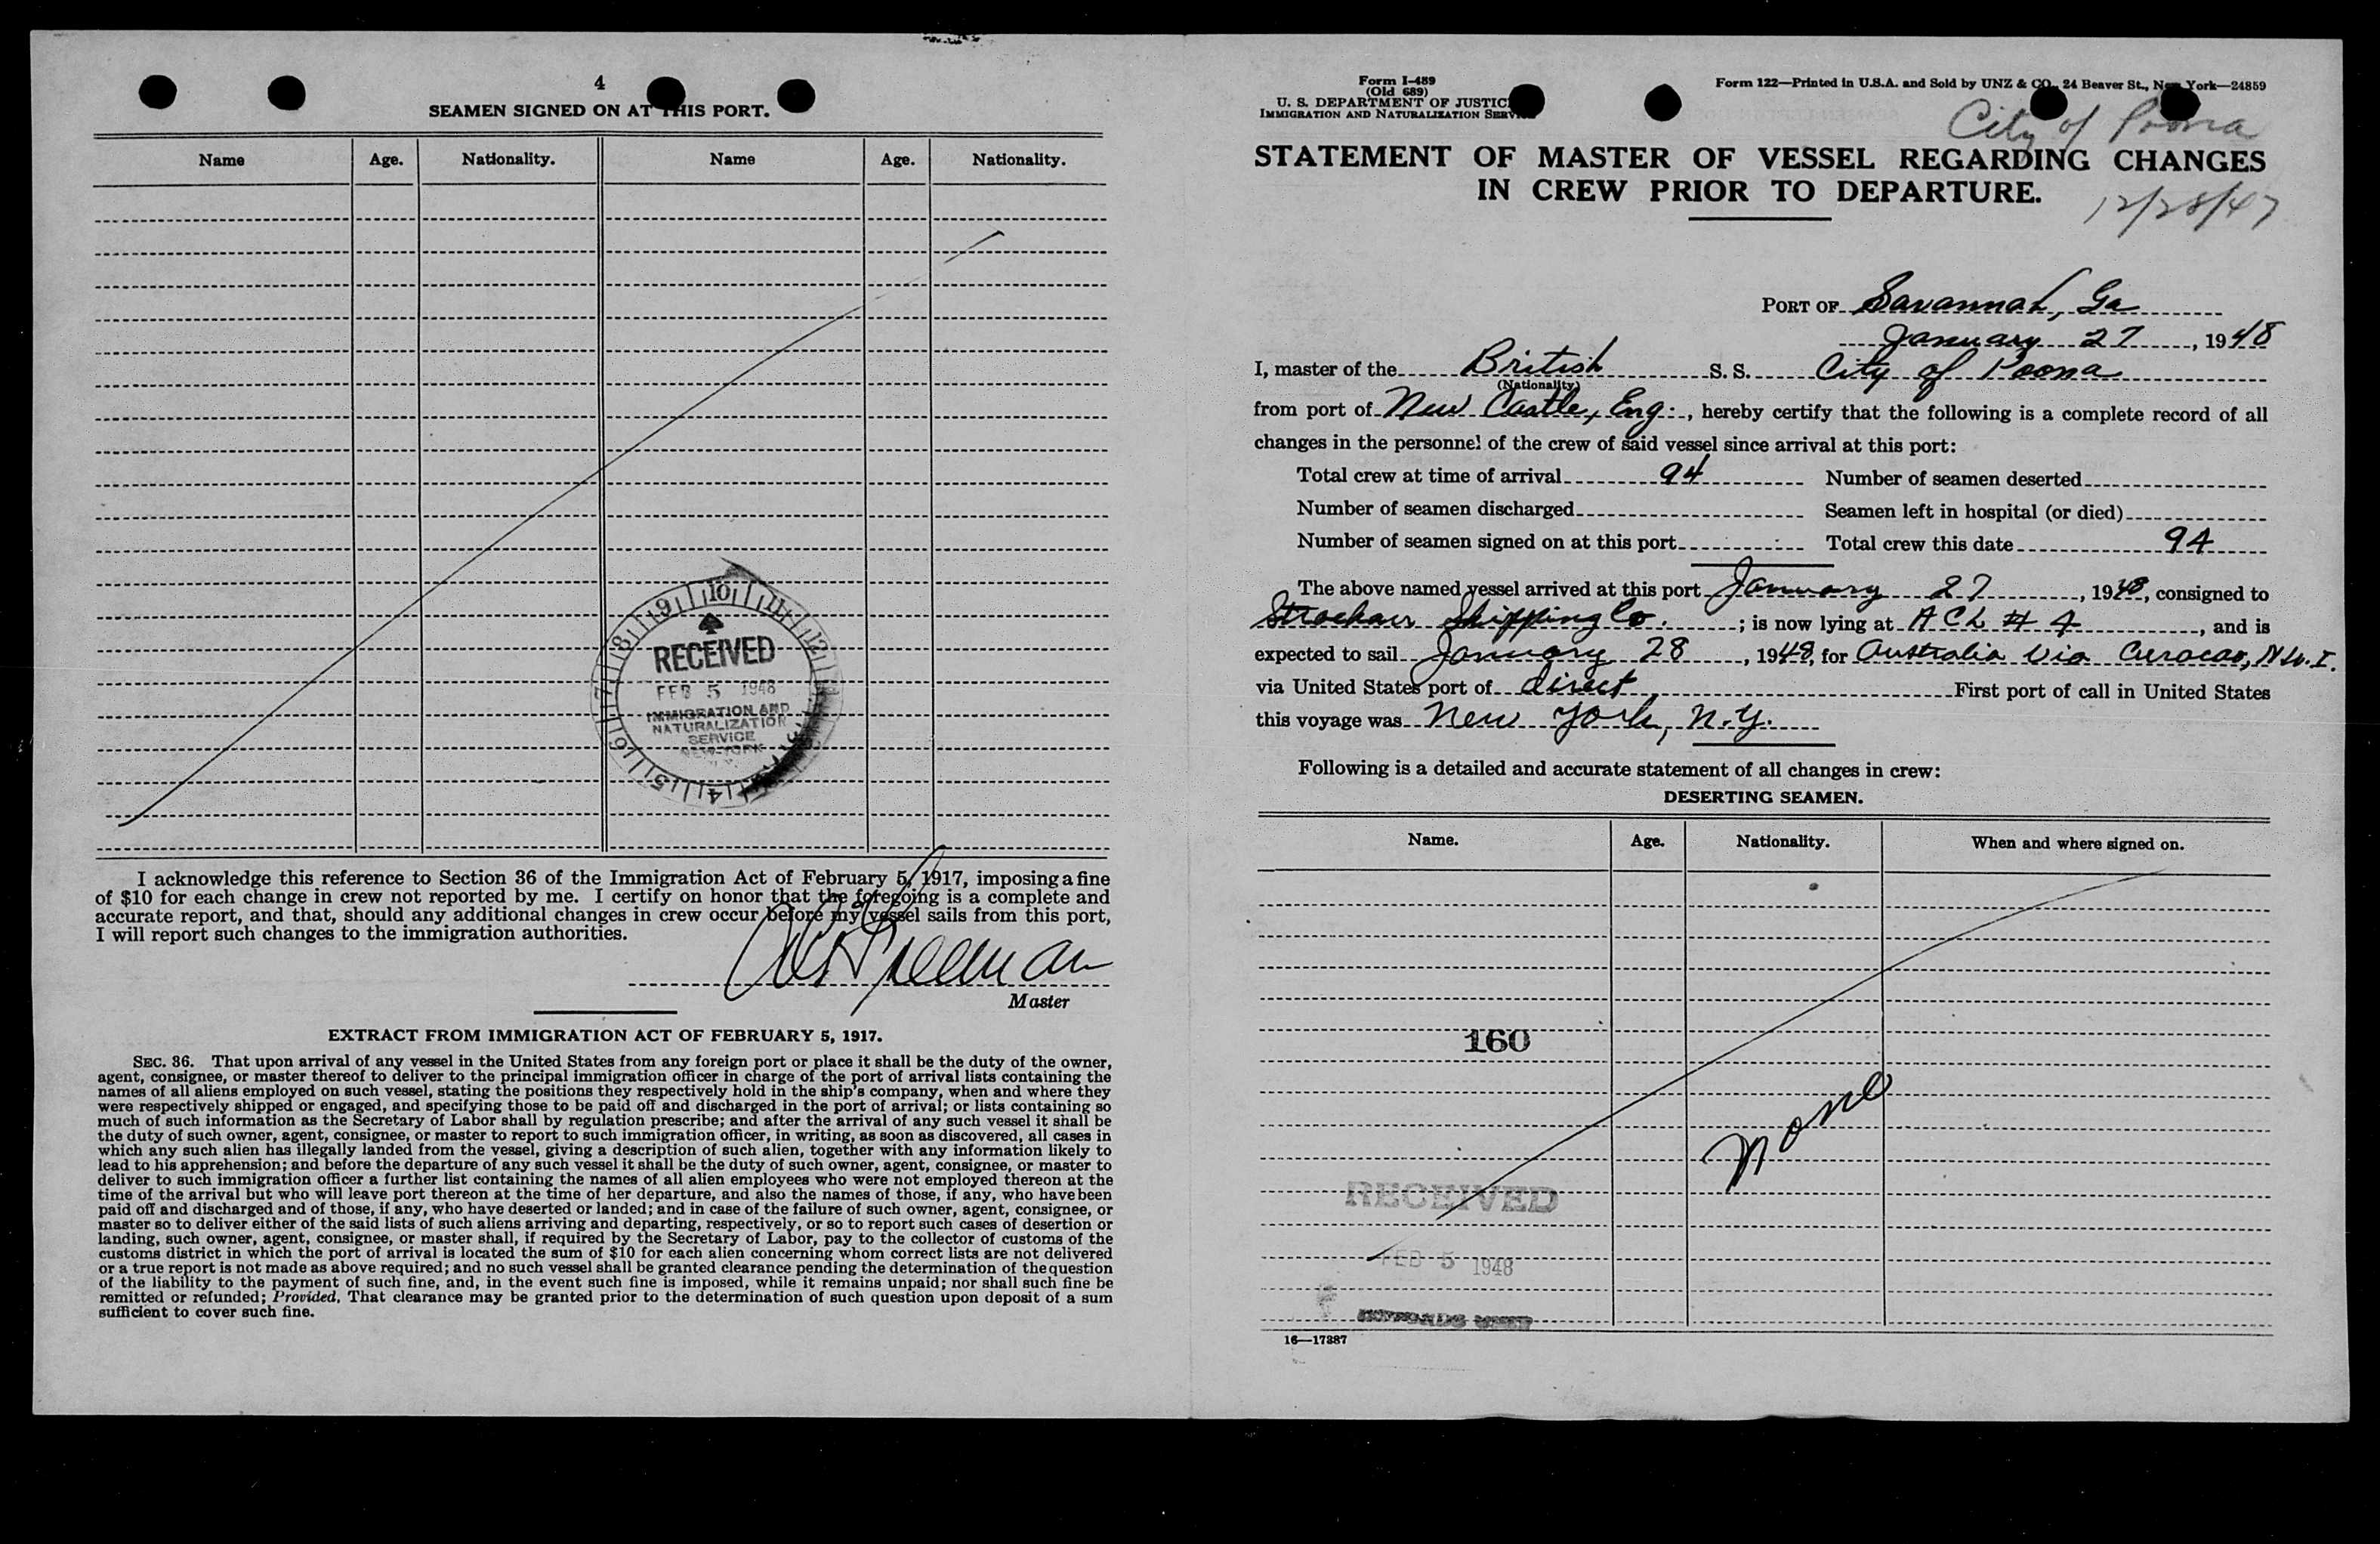 4
SEAMEN SIGNED ON AT THIS PORT.
Name Age. Nationality. Name Age. Nationality.
9 10 11 12
8
RECEIVED
7 FEB 5 1948
IMMIGRATION AND
NATURALIZATION
SERVICE
NEW YORK
6 5 4
I acknowledge this reference to Section 36 of the Immigration Act of February 5, 1917, imposing a fine
of $10 for each change in crew not reported by me. I certify on honor that the foregoing is a complete and
accurate report, and that, should any additional changes in crew occur before my vessel sails from this port,
I will report such changes to the immigration authorities.
Freeman
Master
EXTRACT FROM IMMIGRATION ACT OF FEBRUARY 5, 1917.
SEC. 36. That upon arrival of any vessel in the United States from any foreign port or place it shall be the duty of the owner,
agent, consignee, or master thereof to deliver to the principal immigration officer in charge of the port of arrival lists containing the
names of all aliens employed on such vessel, stating the positions they respectively hold in the ship's company, when and where they
were respectively shipped or engaged, and specifying those to be paid off and discharged in the port of arrival; or lists containing so
much of such information as the Secretary of Labor shall by regulation prescribe; and after the arrival of any such vessel it shall be
the duty of such owner, agent, consignee, or master to report to such immigration officer, in writing, as soon as discovered, all cases in
which any such alien has illegally landed from the vessel, giving a description of such alien, together with any information likely to
lead to his apprehension; and before the departure of any such vessel it shall be the duty of such owner, agent, consignee, or master to
deliver to such immigration officer a further list containing the names of all alien employees who were not employed thereon at the
time of the arrival but who will leave port thereon at the time of her departure, and also the names of those, if any, who have been
paid off and discharged and of those, if any, who have deserted or landed; and in case of the failure of such owner, agent, consignee, or
master so to deliver either of the said lists of such aliens arriving and departing, respectively, or so to report such cases of desertion or
landing, such owner, agent, consignee, or master shall, if required by the Secretary of Labor, pay to the collector of customs of the
customs district in which the port of arrival is located the sum of $10 for each alien concerning whom correct lists are not delivered
or a true report is not made as above required; and no such vessel shall be granted clearance pending the determination of the question
of the liability to the payment of such fine, and, in the event such fine is imposed, while it remains unpaid; nor shall such fine be
remitted or refunded; Provided, That clearance may be granted prior to the determination of such question upon deposit of a sum
sufficient to cover such fine.
Form I-489
(Old 689)
U. S. DEPARTMENT OF JUSTICE
IMMIGRATION AND NATURALIZATION SERVICE
Form 122—Printed in U.S.A. and Sold by UNZ & CO., 24 Beaver St., New York—24859
City of Poona
STATEMENT OF MASTER OF VESSEL REGARDING CHANGES
IN CREW PRIOR TO DEPARTURE.
12/28/47
PORT OF Savannah, Ga
January 27, 1948
I, master of the British S. S. City of Poona
(Nationality)
from port of New Castle, Eng., hereby certify that the following is a complete record of all
changes in the personnel of the crew of said vessel since arrival at this port:
Total crew at time of arrival 94 Number of seamen deserted
Number of seamen discharged Seamen left in hospital (or died)
Number of seamen signed on at this port Total crew this date 94
The above named vessel arrived at this port January 27, 1948, consigned to
Strachan Shipping Co. ; is now lying at ACL # 4, and is
expected to sail January 28, 1948, for Australia Via Curacao, N.W.I.
via United States port of direct First port of call in United States
this voyage was New York, N.Y.
Following is a detailed and accurate statement of all changes in crew:
DESERTING SEAMEN.
Name. Age. Nationality. When and where signed on.
160
None
RECEIVED
FEB 5 1948
16—17387